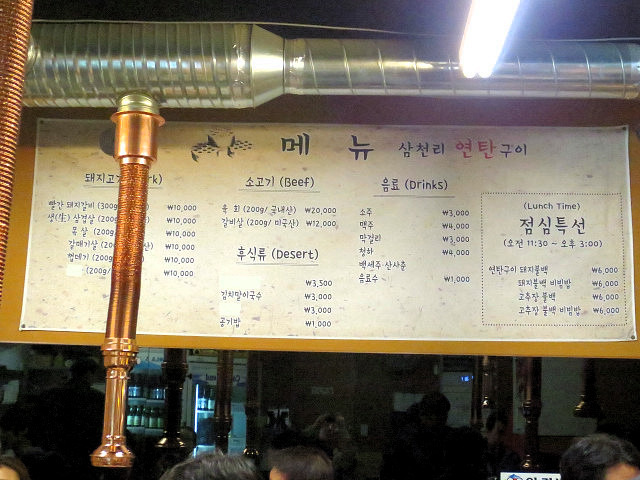 메 뉴 삼천리 연탄구이
돼지고
빨간 돼지갈비 (300 ₩10,000
생(生) 삼겹살 (200 ₩10,000
목 살 (200 ₩10,000
갈매기살 (2 ₩10,000
껍데기 (20 ₩10,000
(200g/ ₩10,000
소고기 (Beef)
육 회 (200g/국내산) ₩20,000
갈비살 (200g/미국산) ₩12,000
후식류 (Desert)
₩3,500
김치말이국수 ₩3,000
₩3,000
공기밥 ₩1,000
음료 (Drinks)
소주 ₩3,000
맥주 ₩4,000
막걸리 ₩3,000
청하 ₩4,000
백세주 산사춘
음료수 ₩1,000
(Lunch Time)
점심특선
(오전 11:30 ~ 오후 3:00)
연탄구이 돼지불백 ₩6,000
돼지불백 비빔밥 ₩6,000
고추장 불백 ₩6,000
고추장 불백 비빔밥 ₩6,000